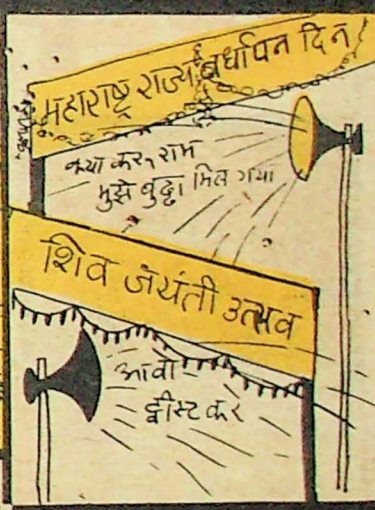 महाराष्ट्र राज्य वर्धापन दिन
क्या करु राम
मुझे बुढ्ढा मिल गया
शिव जयंती उत्सव
आवो
ट्वीस्ट करे